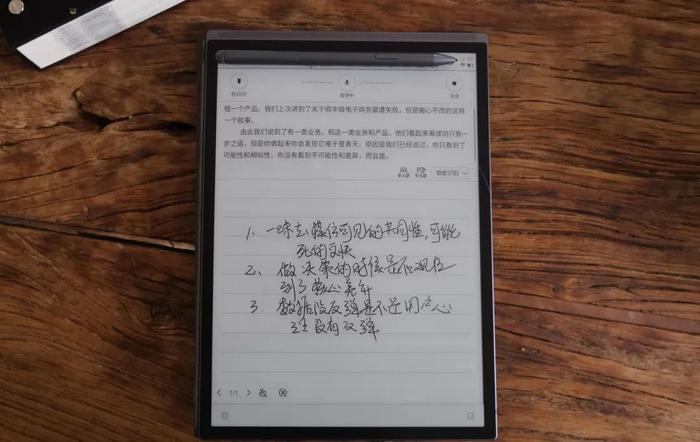 标记问 暂停中 完成
植一个产品。我们上次讲到了关于顺丰做电子商务屡遭失败，但是痴心不改的这样
一个故事。
由此我们说到了有一类业务。和这一类业务和产品，他们看起来离成功只有一
步之遥，但是你做起来你会发现它难于登青天，原因是我们已经说过，你只看到了
可能性和相似性，你没有看到不可能性和差异，而且是。
智能识别
1、一味去模仿可见的共同性，可能
死的更快
2、做决策的时候是否观注
到了核心差异
3、数据没反弹是不是用户心
理没有反弹
1/1